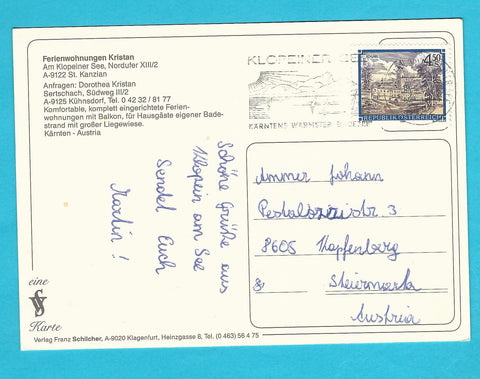 Ferienwohnungen Kristan
Am Klopeiner See, Nordufer XIII/2
A-9122 St. Kanzian
Anfragen: Dorothea Kristan
Sertschach, Südweg III/2
A-9125 Kühnsdorf, Tel. 0 42 32 / 81 77
Komfortable, komplett eingerichtete Ferien-
wohnungen mit Balkon, für Hausgäste eigener Bade-
strand mit großer Liegewiese.
Kärnten - Austria
KLOPEINER SEE
KÄRNTENS WÄRMSTER BADESEE
4.50
REPUBLIK ÖSTERREICH
Schöne Grüße aus
Klopein am See
Sendet Euch
Martin!
Ammer Johann
Pestalozzistr. 3
8605 Kapfenberg
Steiermark
Austria
eine
SV
Karte
Verlag Franz Schilcher, A-9020 Klagenfurt, Heinzgasse 8, Tel. (0 463) 56 4 75